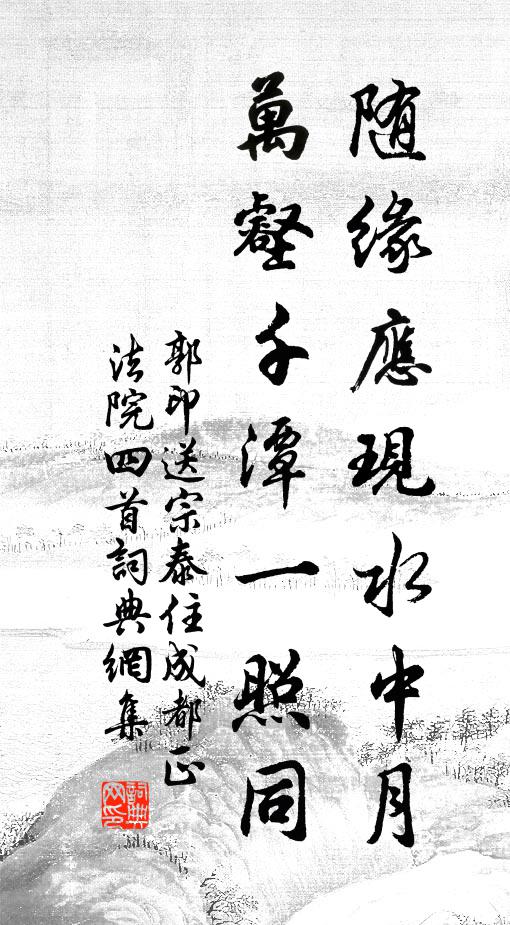 随緣應現水中月
萬壑千潭一照同
郭印送宗泰住成都正
法院四首詞典網集
詞典
网印